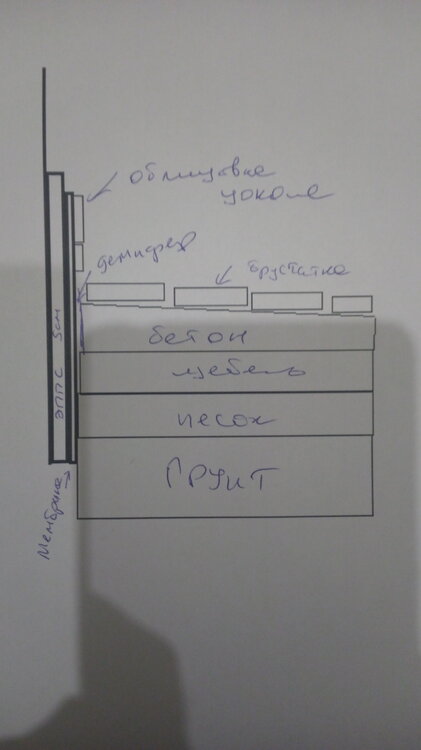 облицовка
цоколя
демпфер
брусчатка
бетон
щебень
песок
Грунт
ЭППС 5см
Мембрана